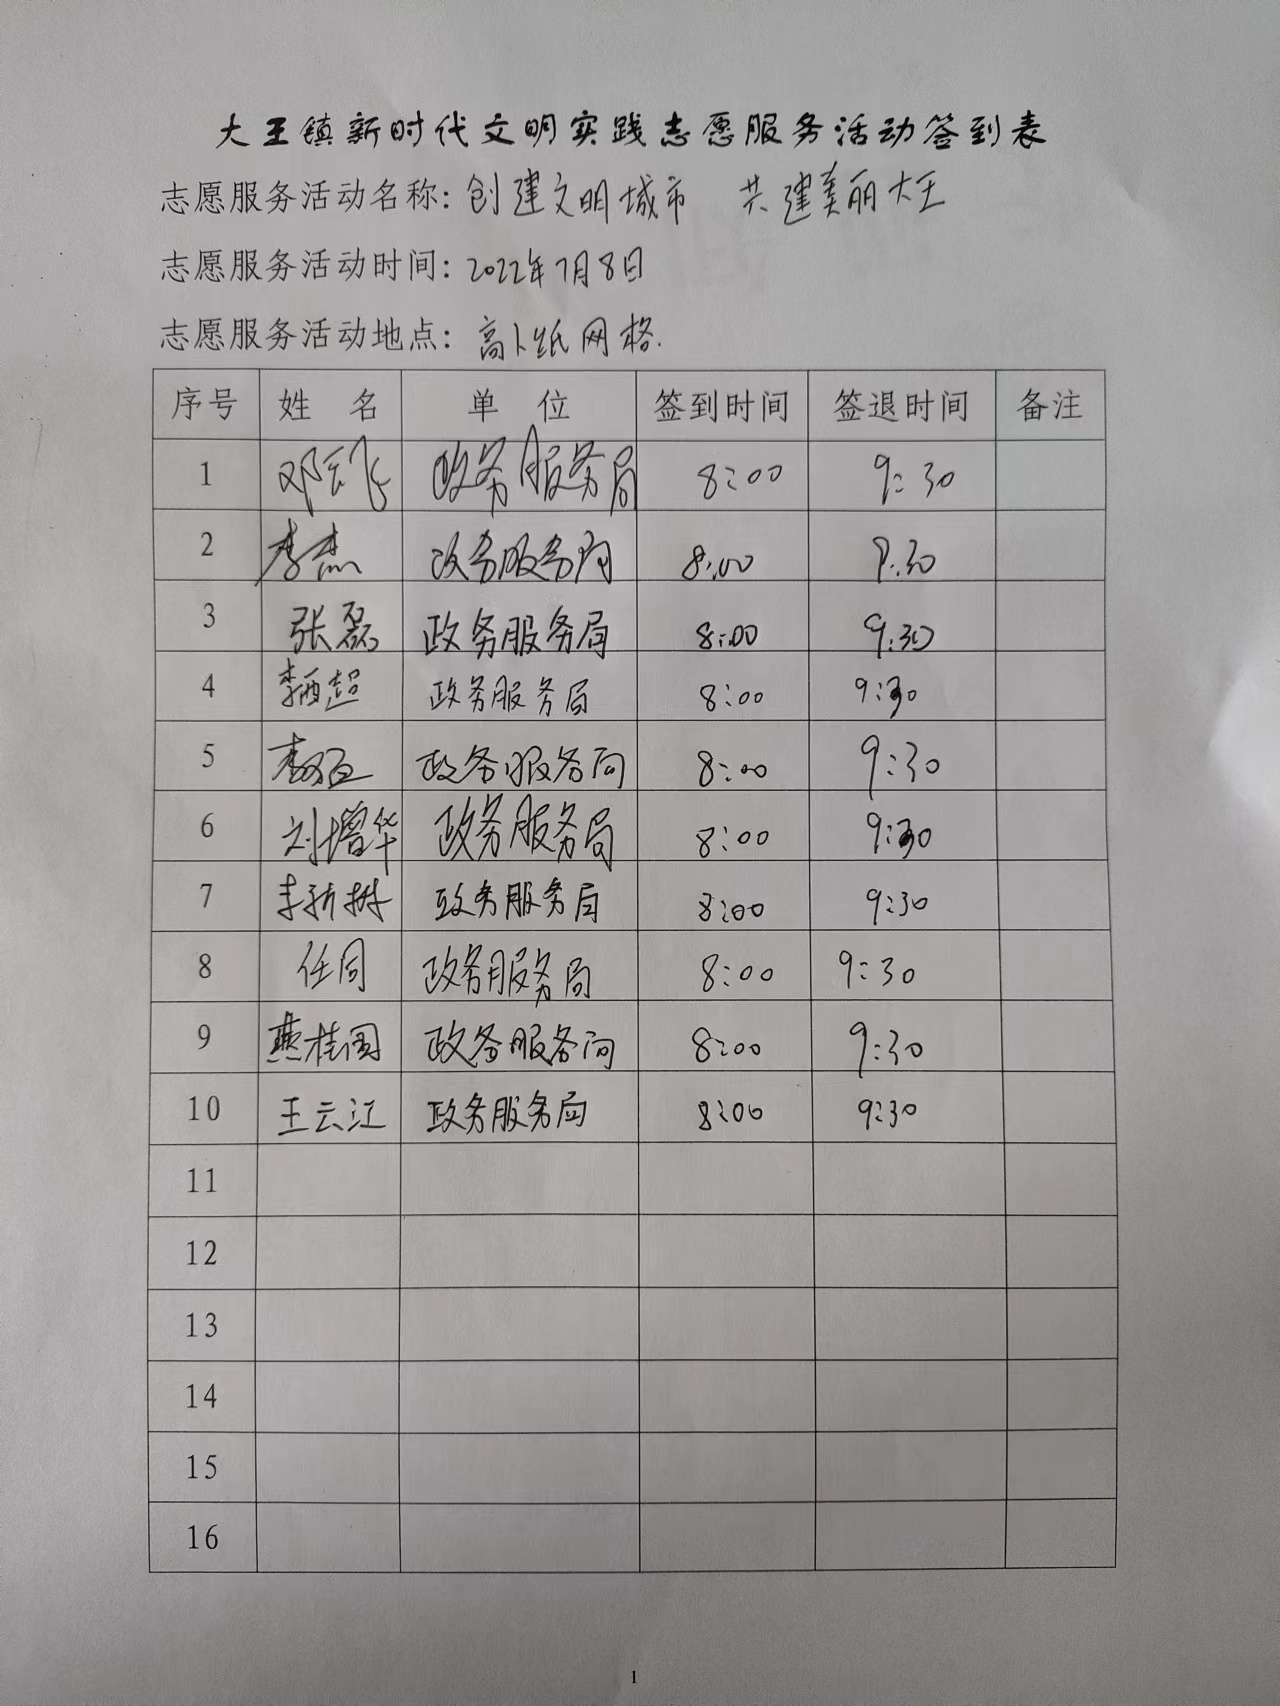 大王镇新时代文明实践志愿服务活动签到表
志愿服务活动名称：创建文明城市 共建美丽大王
志愿服务活动时间：2022年7月8日
志愿服务活动地点：高卜纸网格.
序号 姓 名 单 位 签到时间 签退时间 备注
1 邓云飞 政务服务局 8:00 9:30
2 李杰 政务服务局 8:00 9:30
3 张磊 政务服务局 8:00 9:30
4 政务服务局 8:00 9:30
5 政务服务局 8:00 9:30
6 刘增华 政务服务局 8:00 9:30
7 李新树 政务服务局 8:00 9:30
8 任同 政务服务局 8:00 9:30
9 燕桂国 政务服务局 8:00 9:30
10 王云江 政务服务局 8:00 9:30
11
12
13
14
15
16
1